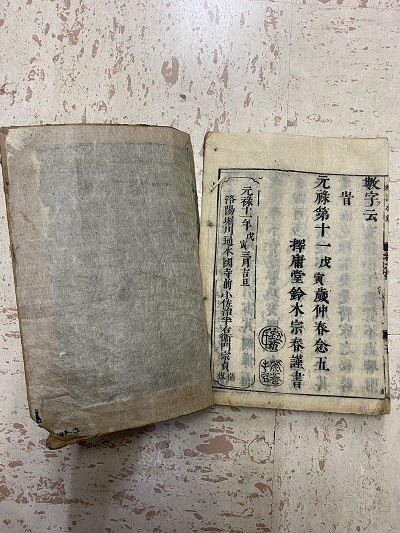 數字云
旹
元祿第十一戊寅歲仲春念五
擇庸堂鈴木宗春謹書
元祿十一年戊寅三月吉旦
洛陽堀川通本國寺前小佐治半右衛門宗貞